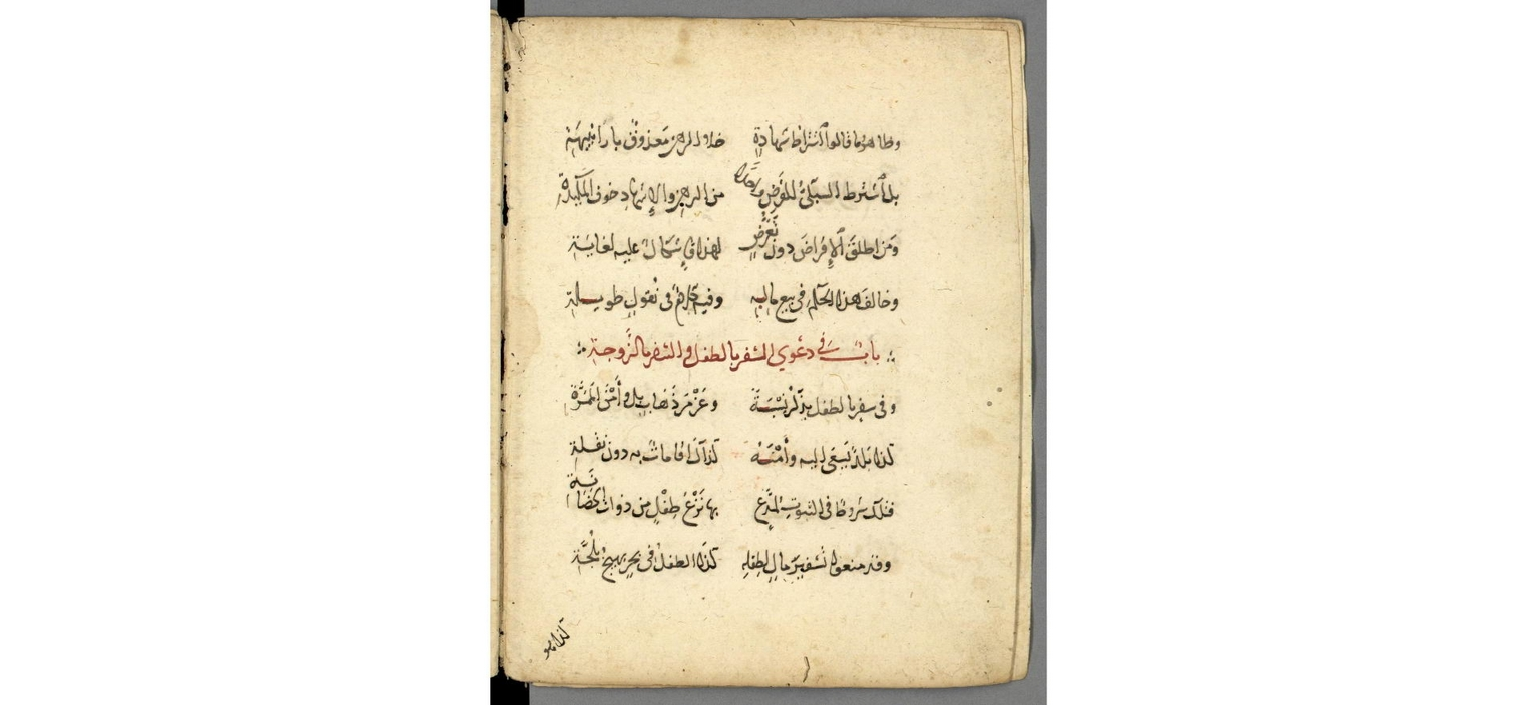 وظاهر ما قالوا اشتراط شهادة خلا الرهن معذوق بارا بيهة
بل اشترط السبكي للقرض واحدا من الرهن والإشهاد خوف المكيدة
ومن اطلق الإقراض دون تعرض لهذا فإشكال عليه لغاية
وخالف هذا الحكم في بيع ماله وفيه كلام في نقول طويلة
باب في دعوي السفر بالطفل والسفر بالزوجة
وفي سفر بالطفل يذكر نسبة وعزم ذهاب بل وأمن المسرة
كذا بلد يبغى إليه وأمنه كذاك اقامات به دون نقلة
فتلك شروط في الثبوت لمدع بها نزع طفل من ذوات الحضانة
وقد منعوا تسفير مال لطفله كذا الطفل في بحر يهيج بلجة
كذا